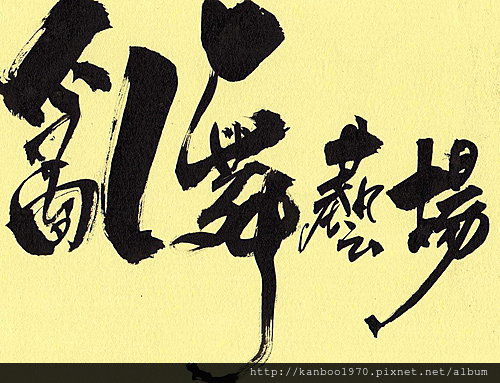 亂舞藝場
http://kanboo1970.pixnet.net/album